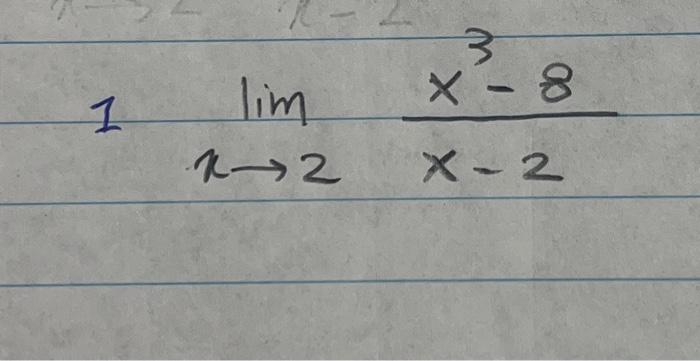 1 lim x→2 (x³ - 8)/(x - 2)